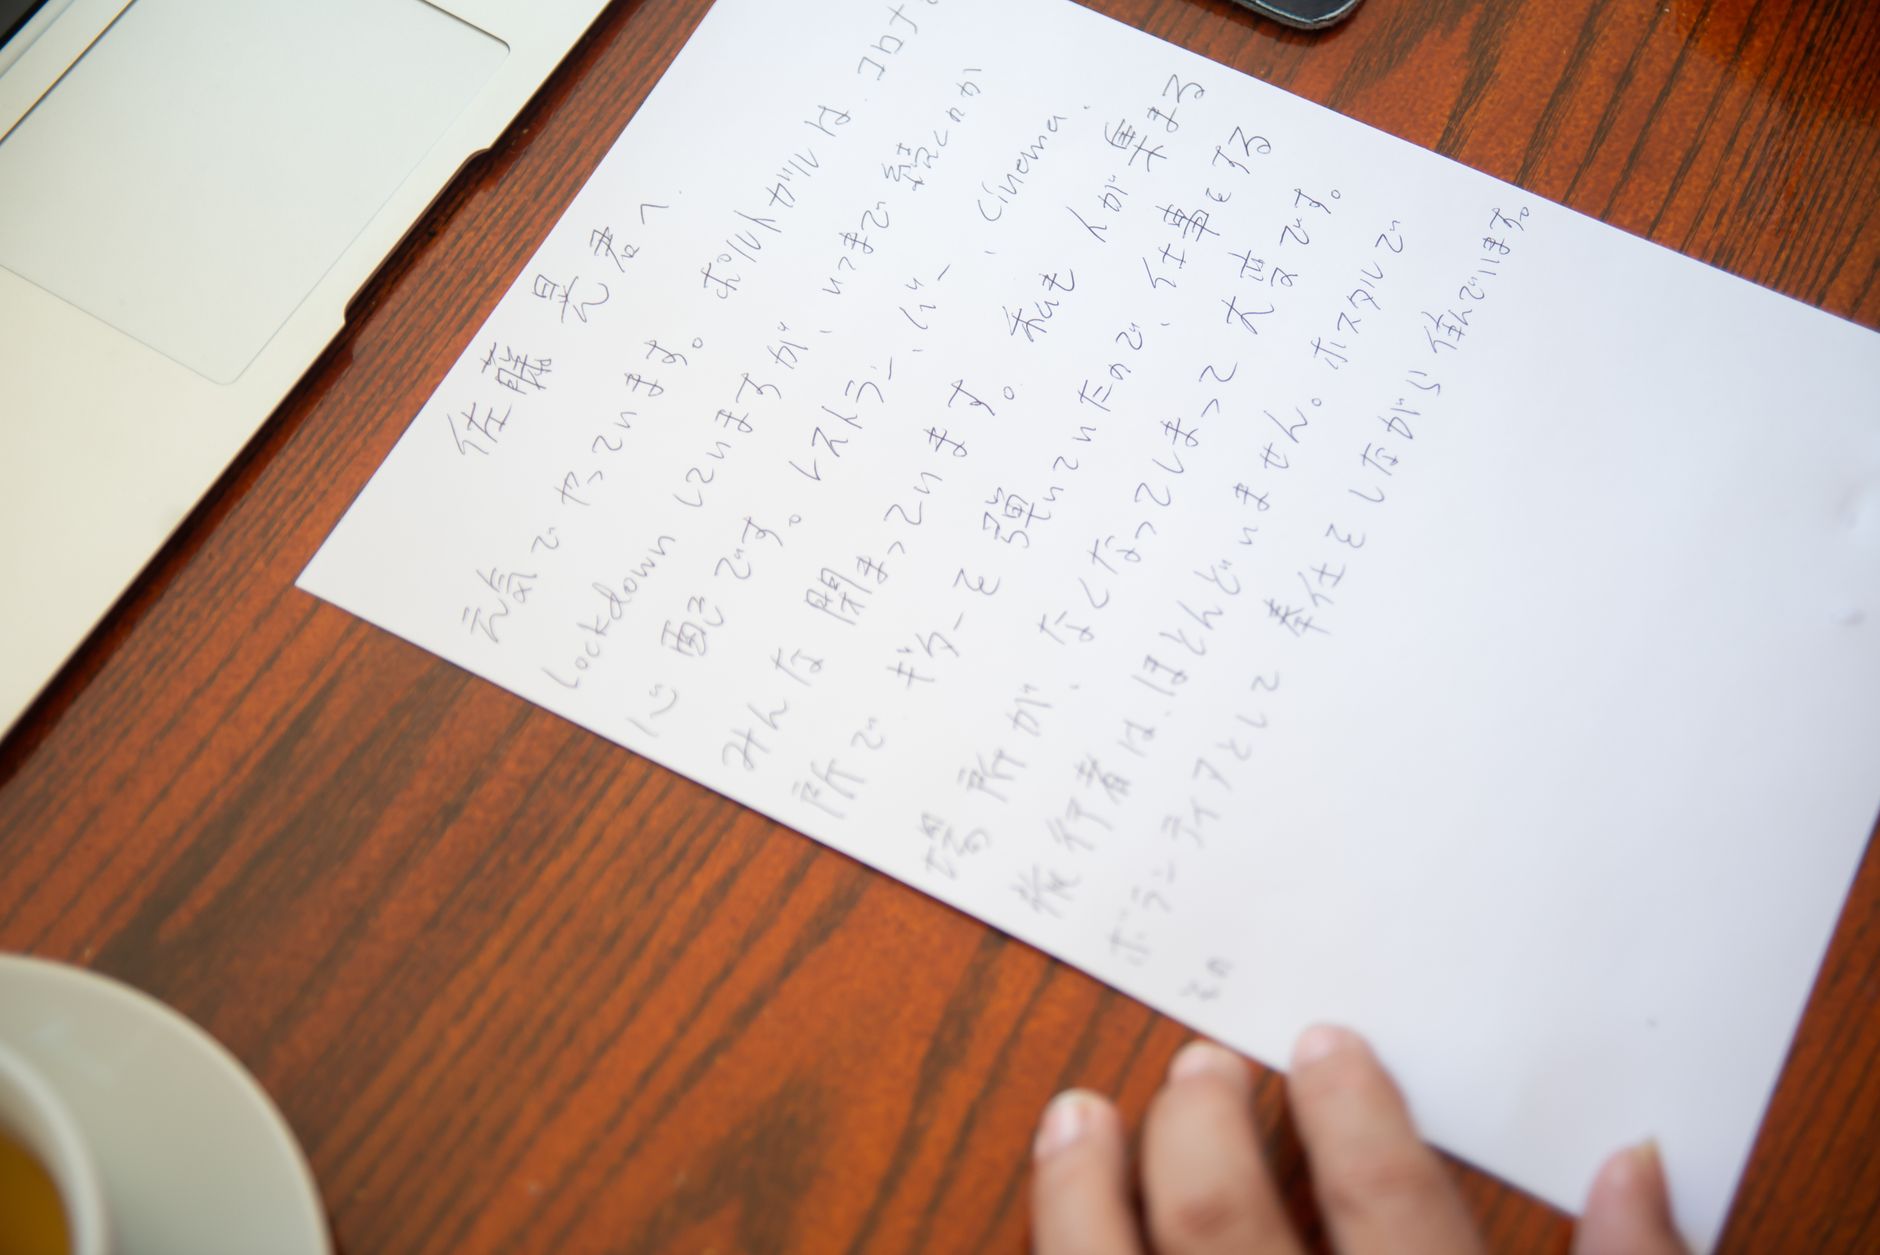 佐藤 晃君へ
元気でやっています。ポルトガルは、コロナで
Lockdownしていますが、いつまで続くのか
心配です。レストラン、バー、cinema、
みんな閉まっています。私も人が集まる
所でギターを弾いていたので、仕事をする
場所が、なくなってしまって大変です。
旅行者は、ほとんどいません。ホスタルで
ボランティアとして奉仕をしながら住んでいます。
その